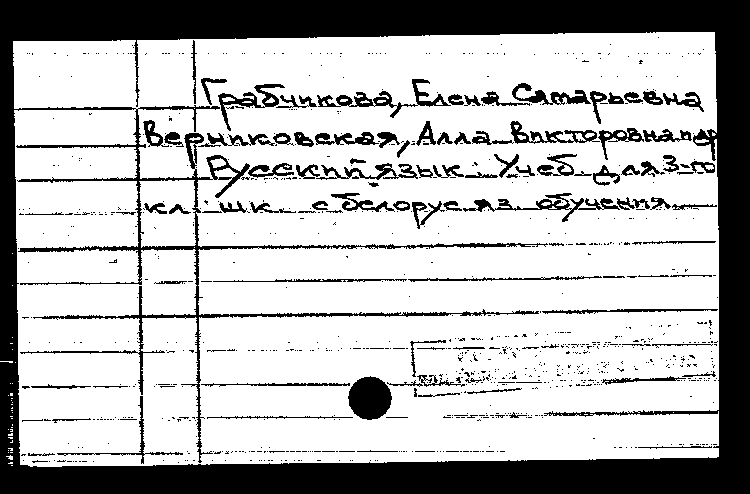 Грабчикова, Елена Самарьевна
Верниковская, Алла Викторовна и др
Русский язык : Учеб. для 3-го
кл. шк. с белорус. яз. обучения.